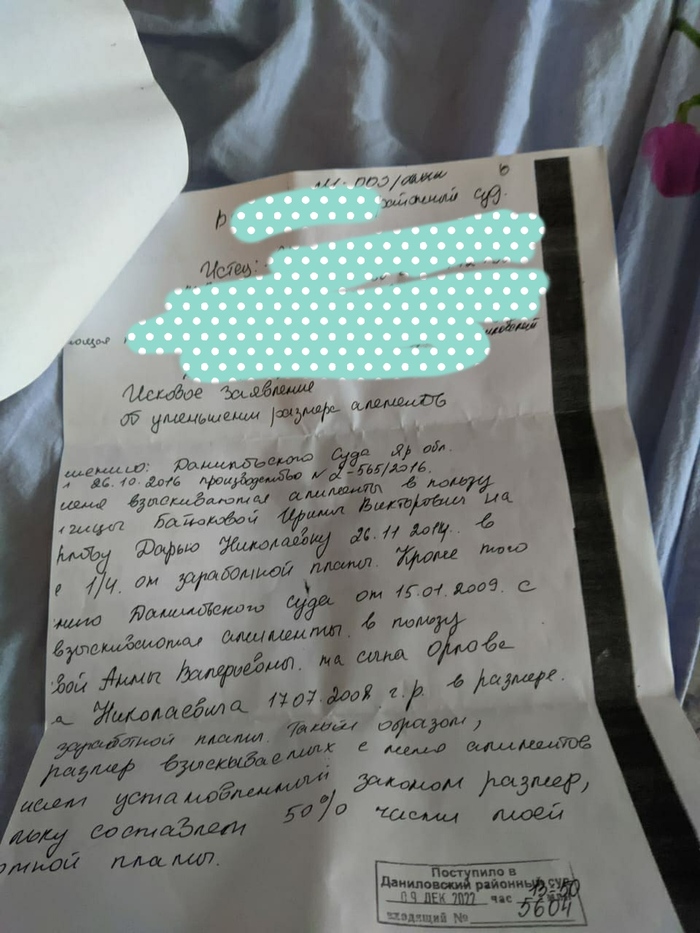 В районный суд.
Истец:
Исковое заявление
об уменьшении размера алементов
шению: Даниловского Суда Яр обл.
26.10.2016 производство № 2-565/2016.
меня взыскиваются алименты в пользу
Батюковой Ирины Викторовны на
Дарью Николаевну 26.11 2014. в
е 1/4. от заработной платы. Кроме того
Даниловского суда от 15.01.2009. с
взыскиваются алименты. в пользу
вой Анны Валерьевны. на сына Орлова
а Николаевича 17 07. 2008 г.р. в размере.
заработной платы. Таким образом,
размер взыскываемых с меня алиментов
установленный законом размер,
льку составлет 50% части моей
отной платы.
Поступило в
Даниловский районный суд
09 ДЕК 2022 час 13-50
входящий № 5604